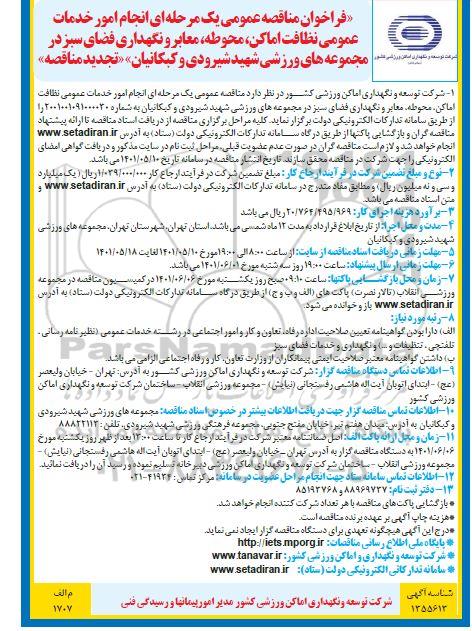 «فراخوان مناقصه عمومی یک مرحله‌ای انجام امور خدمات
عمومی نظافت اماکن، محوطه، معابر و نگهداری فضای سبز در
مجموعه های ورزشی شهید شیرودی و کبکانیان» «تجدید مناقصه»
شرکت توسعه و نگهداری اماکن ورزشی کشور
۱- شرکت توسعه و نگهداری اماکن ورزشی کشور در نظر دارد مناقصه عمومی یک مرحله ای انجام امور خدمات عمومی نظافت
اماکن، محوطه، معابر و نگهداری فضای سبز در مجموعه های ورزشی شهید شیرودی و کبکانیان به شماره ۲۰۰۱۰۰۱۰۹۱۰۰۰۰۲۰ را
از طریق سامانه تدارکات الکترونیکی دولت برگزار نماید. کلیه مراحل برگزاری مناقصه از دریافت اسناد مناقصه تا ارائه پیشنهاد
مناقصه گران و بازگشایی پاکتها از طریق درگاه سامانه تدارکات الکترونیکی دولت (ستاد) به آدرس www.setadiran.ir
انجام خواهد شد و لازم است مناقصه گران در صورت عدم عضویت قبلی، مراحل ثبت نام در سایت مذکور و دریافت گواهی امضای
الکترونیکی را جهت شرکت در مناقصه محقق سازند. تاریخ انتشار مناقصه در سامانه تاریخ ۱۴۰۱/۰۵/۱۰ می باشد.
۲- نوع و مبلغ تضمین شرکت در فرآیند ارجاع کار: مبلغ تضمین شرکت در فرآیند ارجاع کار ۱/۰۳۹/۰۰۰/۰۰۰ ریال (یک میلیارد
و سی و نه میلیون ریال) و مطابق مفاد مندرج در سامانه تدارکات الکترونیکی دولت (ستاد) به آدرس www.setadiran.ir و
متن اسناد مناقصه می باشد.
۳- برآورد هزینه اجرای کار: ۲۰/۷۶۴/۴۹۵/۹۶۹ ریال می باشد
۴- مدت و محل اجرا: از تاریخ ابلاغ قرارداد به مدت ۱۲ ماه شمسی می باشد، استان تهران، شهرستان تهران، مجموعه های ورزشی
شهید شیرودی و کبکانیان
۵- مهلت زمانی دریافت اسناد مناقصه از سایت: از ساعت ۸:۰۰ الی ۱۹:۰۰ مورخ ۱۴۰۱/۰۵/۱۰ لغایت ۱۴۰۱/۰۵/۱۸
۶- مهلت زمانی ارسال پیشنهاد: ساعت ۱۹:۰۰ روز سه شنبه مورخ ۱۴۰۱/۰۶/۰۱ می باشد.
۷- زمان و محل بازگشایی پاکتها: ساعت ۰۹:۱۰ صبح روز یکشنبه مورخ ۱۴۰۱/۰۶/۰۶ در کمیسیون مناقصه در مجموعه
ورزشی انقلاب (تالار نصرت) پاکت های (الف و ب و ج) از طریق درگاه سامانه تدارکات الکترونیکی دولت (ستاد) به آدرس
www.setadiran.ir باز و خوانده می شود.
۸- رتبه مورد نیاز:
الف) دارا بودن گواهینامه تعیین صلاحیت اداره رفاه، تعاون و کار و امور اجتماعی در رشته خدمات عمومی (نظیر نامه رسانی،
تلفنچی، تنظیفات و ...) و نگهداری و خدمات فضای سبز
ب) داشتن گواهینامه معتبر صلاحیت ایمنی پیمانکاران از وزارت تعاون، کار و رفاه اجتماعی الزامی می باشد.
۹- اطلاعات تماس دستگاه مناقصه گزار: شرکت توسعه و نگهداری اماکن ورزشی کشور به آدرس: تهران - خیابان ولیعصر
(عج) - ابتدای اتوبان آیت اله هاشمی رفسنجانی (نیایش) - مجموعه ورزشی انقلاب - ساختمان شرکت توسعه و نگهداری اماکن
ورزشی کشور
۱۰- اطلاعات تماس مناقصه گزار جهت دریافت اطلاعات بیشتر در خصوص اسناد مناقصه: مجموعه های ورزشی شهید شیرودی
و کبکانیان به آدرس: میدان هفتم تیر، خیابان مفتح جنوبی، مجموعه فرهنگی ورزشی شهید شیرودی، تلفن: ۸۸۸۲۲۱۱۳
۱۱- زمان و محل ارائه پاکت الف: اصل ضمانتنامه معتبر شرکت در فرآیند ارجاع کار تا ساعت ۱۳:۰۰ بعد از ظهر روز یکشنبه مورخ
۱۴۰۱/۰۶/۰۶ به دستگاه مناقصه گزار به آدرس تهران - خیابان ولیعصر (عج) - ابتدای اتوبان آیت اله هاشمی رفسنجانی (نیایش) -
مجموعه ورزشی انقلاب - ساختمان شرکت توسعه و نگهداری اماکن ورزشی دبیرخانه تسلیم نموده و رسید آن را دریافت نمائید.
۱۲- اطلاعات تماس سامانه ستاد جهت انجام مراحل عضویت در سامانه: مرکز تماس: ۴۱۹۳۴-۰۲۱
۱۳- دفتر ثبت نام: ۸۸۹۶۹۷۳۷ و ۸۵۱۹۳۷۶۸
* بازگشایی پاکت‌های مناقصه با هر تعداد شرکت کننده انجام خواهد شد.
* هزینه چاپ آگهی بر عهده برنده مناقصه است.
* درج این آگهی هیچگونه تعهدی برای دستگاه مناقصه گزار ایجاد نمی نماید.
* پایگاه ملی اطلاع رسانی مناقصات: http://iets.mporg.ir
* شرکت توسعه و نگهداری و اماکن ورزشی کشور: www.tanavar.ir
* سامانه تدارکاتی الکترونیکی دولت (ستاد): www.setadiran.ir
شناسه آگهی
۱۳۵۵۶۱۳
شرکت توسعه و نگهداری اماکن ورزشی کشور مدیر امور پیمانها و رسیدگی فنی
م الف
۱۷۰۷